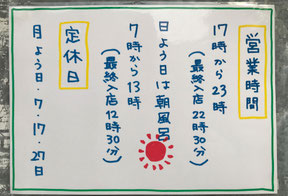 営業時間
17時から23時
(最終入店22時30分)
日よう日は朝風呂
7時から13時
(最終入店12時30分)
定休日
月よう日・7・17・27日